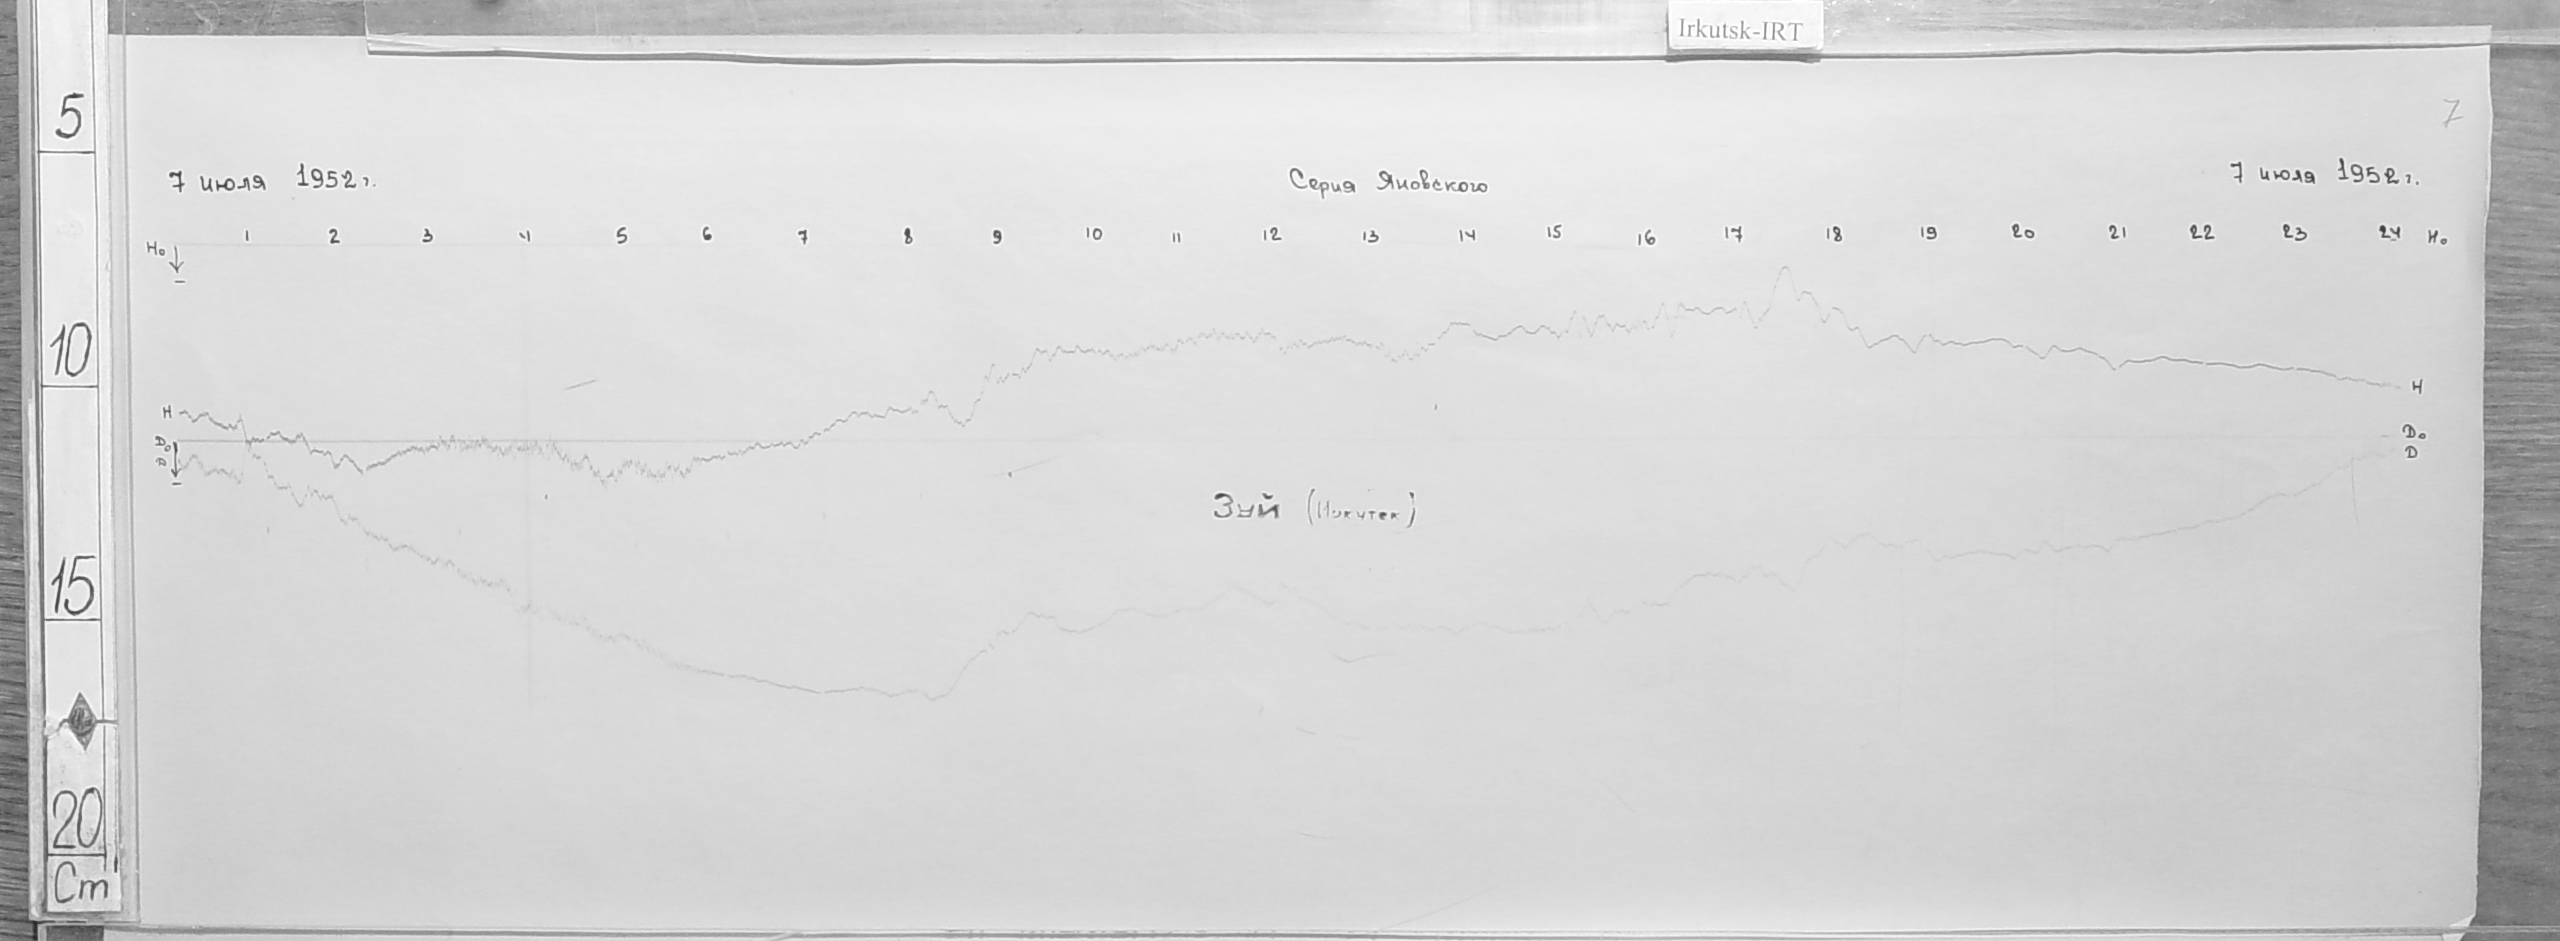 Irkutsk-IRT
7
7 июля 1952 г.
Серия Яновского
7 июля 1952 г.
1 2 3 4 5 6 7 8 9 10 11 12 13 14 15 16 17 18 19 20 21 22 23 24 H₀
H₀
H
H
D₀
D₀
D
D
Зуй (Иркутск)
5
10
15
20
Cm